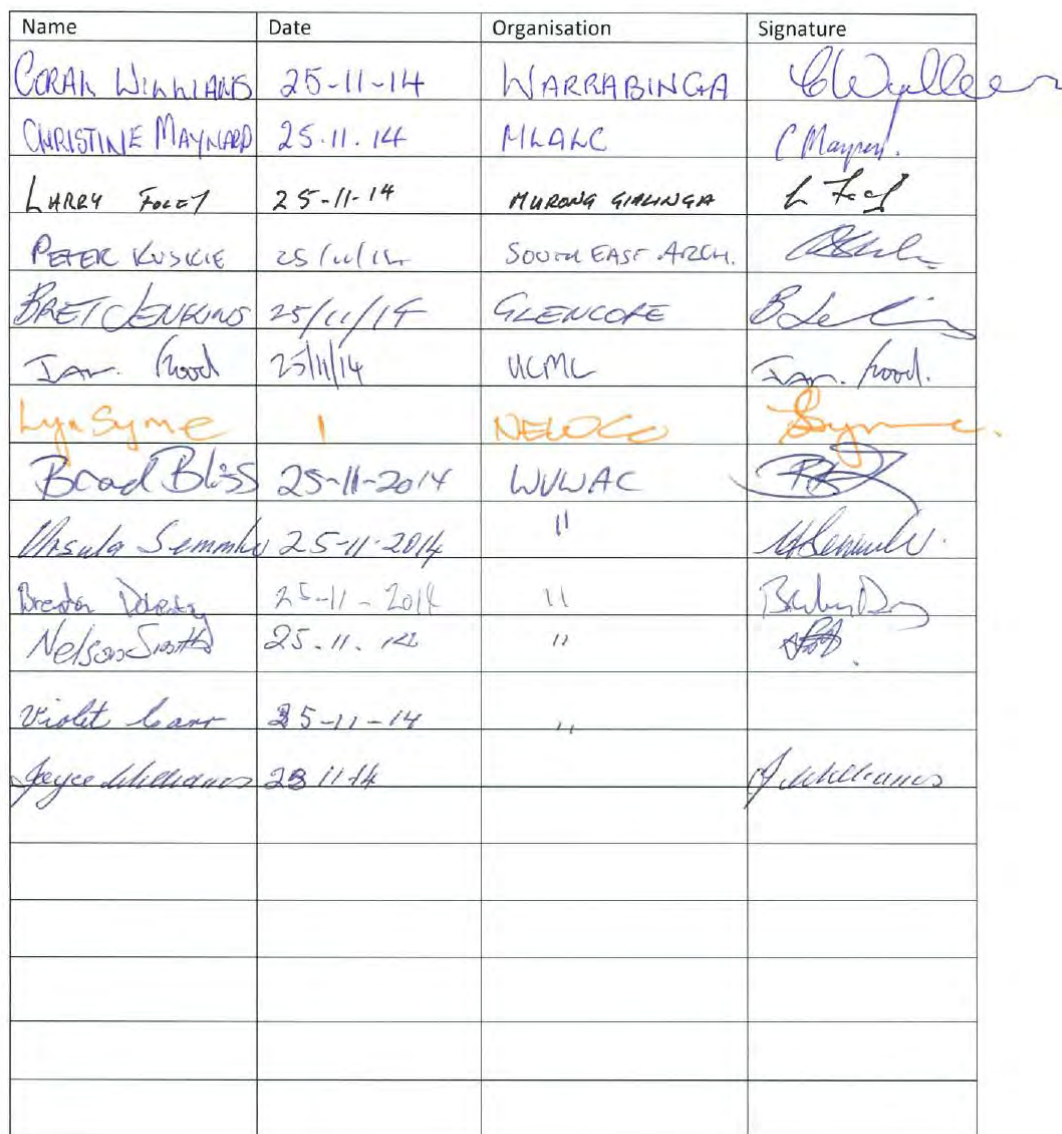 Name Date Organisation Signature
CORAL WILLIAMS 25-11-14 WARRABINGA
CHRISTINE MAYNARD 25.11.14 MLALC C Maynard.
LARRY FOLEY 25-11-14 MURONG GIALINGA
PETER KUSKIE 25/11/14 SOUTH EAST ARCH.
BRET JENKINS 25/11/14 GLENCORE
Ian. Flood 25/11/14 UCML Ian. Flood.
Lyn Syme NEWCO
Brad Bliss 25-11-2014 WVWAC
Ursula 25-11-2014 "
25-11-2014 "
Nelson Smith 25.11.14 "
Violet Carr 25-11-14 "
Joyce Williams 11-14 J Williams